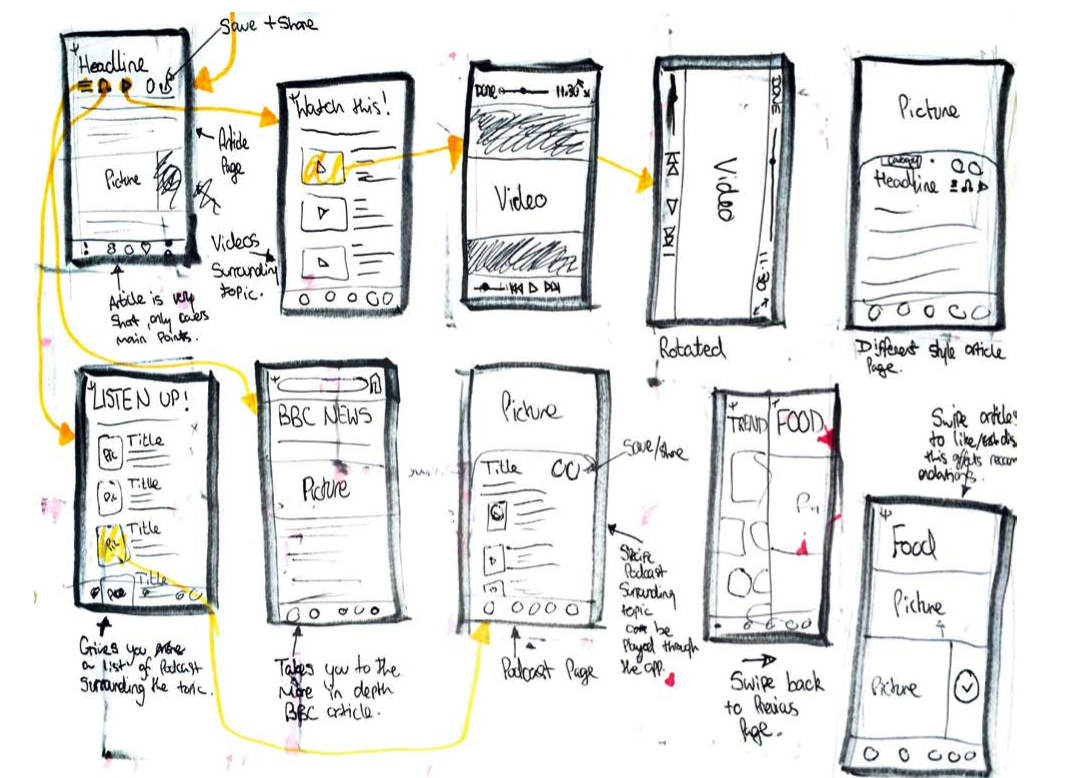 Save + Share
Headline
Article
Page
Picture
Article is very
Short, only covers
main points.
Watch this!
Videos
Surrounding
topic.
DONE
11:30
Video
DONE
Video
11:30
Rotated
Picture
Category
Headline
Different style article
Page.
LISTEN UP!
Pic
Title
Pic
Title
Pic
Title
Title
Gives you
a list of Podcast
Surrounding the topic.
BBC NEWS
Picture
Takes you to the
More in depth
BBC article.
Picture
Title
Save/share
Podcast Page
Podcast
Surrounding
topic
be
played through
the app.
TREND
FOOD
Swipe back
to Previous
Page.
Swipe article
to like/
this affects recom
endations.
Food
Picture
Picture